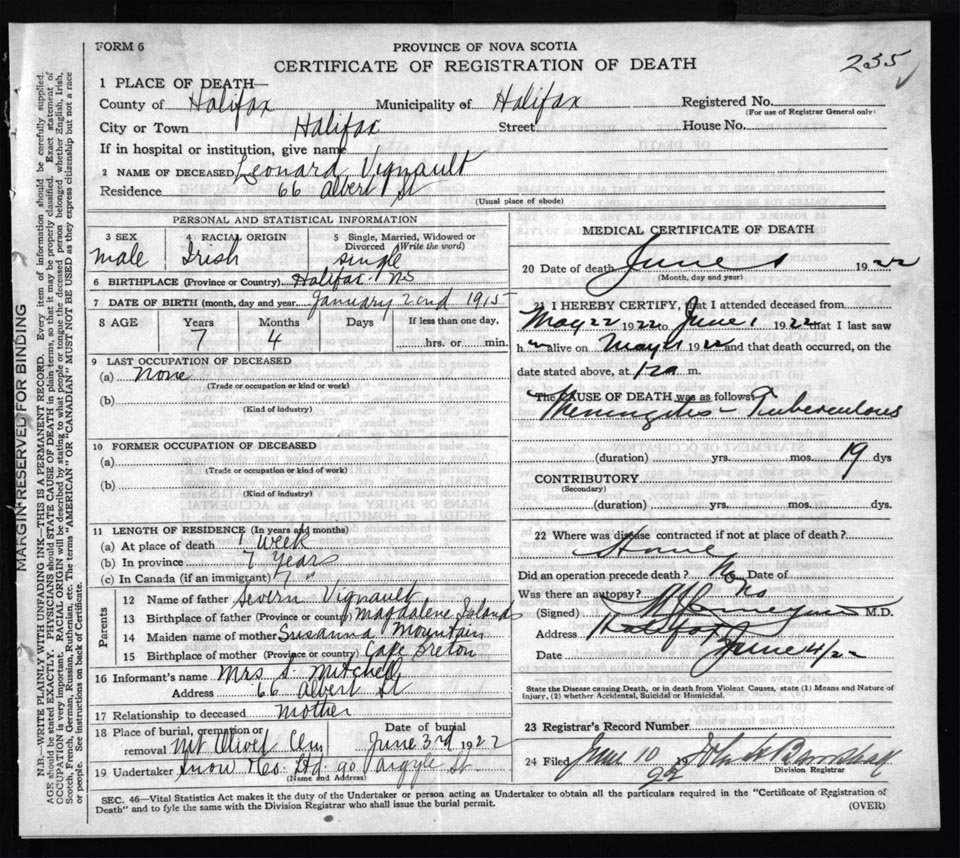 FORM 6
PROVINCE OF NOVA SCOTIA
CERTIFICATE OF REGISTRATION OF DEATH
235
1 PLACE OF DEATH—
County of Halifax Municipality of Halifax Registered No.
(For use of Registrar General only)
City or Town Halifax Street House No.
If in hospital or institution, give name
2 NAME OF DECEASED Leonard Vignault
Residence 66 Albert St
(Usual place of abode)
PERSONAL AND STATISTICAL INFORMATION
3 SEX 4 RACIAL ORIGIN 5 Single, Married, Widowed or Divorced (Write the word)
male Irish single
6 BIRTHPLACE (Province or Country) Halifax NS
7 DATE OF BIRTH (month, day and year January 22nd 1915
8 AGE Years Months Days If less than one day,
7 4 hrs. or min.
9 LAST OCCUPATION OF DECEASED
(a) None
(Trade or occupation or kind of work)
(b)
(Kind of industry)
10 FORMER OCCUPATION OF DECEASED
(a)
(Trade or occupation or kind of work)
(b)
(Kind of industry)
11 LENGTH OF RESIDENCE (In years and months)
(a) At place of death 1 week
(b) In province 7 years
(c) In Canada (if an immigrant) 7 "
Parents
12 Name of father Severn Vignault
13 Birthplace of father (Province or country) Magdalene Islands
14 Maiden name of mother Susanna Mountain
15 Birthplace of mother (Province or country) Cape Breton
16 Informant's name Mrs S. Mitchell
Address 66 Albert St
17 Relationship to deceased mother
18 Place of burial, cremation or removal Mt Olivet Cem Date of burial June 3rd 1922
19 Undertaker Snow & Co. Ltd. 90 Argyle St.
(Name and Address)
MEDICAL CERTIFICATE OF DEATH
20 Date of death June 1 1922
(Month, day and year)
21 I HEREBY CERTIFY, that I attended deceased from
May 22 1922 to June 1 1922 that I last saw
h m alive on May 1922 and that death occurred, on the
date stated above, at m.
The CAUSE OF DEATH was as follows:
Meningitis – Tuberculous
(duration) yrs. mos. 19 dys
CONTRIBUTORY
(Secondary)
(duration) yrs. mos. dys.
22 Where was disease contracted if not at place of death?
Home
Did an operation precede death? No Date of
Was there an autopsy? No
(Signed) M.D.
Address Halifax
Date June 4/22
State the Disease causing Death, or in death from Violent Causes, state (1) Means and Nature of
Injury, (2) whether Accidental, Suicidal or Homicidal.
23 Registrar's Record Number
24 Filed June 10 19 22
Division Registrar
SEC. 46—Vital Statistics Act makes it the duty of the Undertaker or person acting as Undertaker to obtain all the particulars required in the "Certificate of Registration of
Death" and to fyle the same with the Division Registrar who shall issue the burial permit.
(OVER)
MARGIN RESERVED FOR BINDING
N.B.—WRITE PLAINLY WITH UNFADING INK—THIS IS A PERMANENT RECORD. Every item of information should be carefully supplied.
AGE should be stated EXACTLY. PHYSICIANS should STATE CAUSE OF DEATH in plain terms, so that it may be properly classified. Exact statement of
OCCUPATION is very important. RACIAL ORIGIN will be described by stating to what people or tongue the deceased person belonged whether English, Irish,
Scotch, French, German, Russian, Ruthenian, etc. The terms "AMERICAN" OR "CANADIAN" MUST NOT BE USED as they express citizenship but not a race
or people. See instructions on back of Certificate.